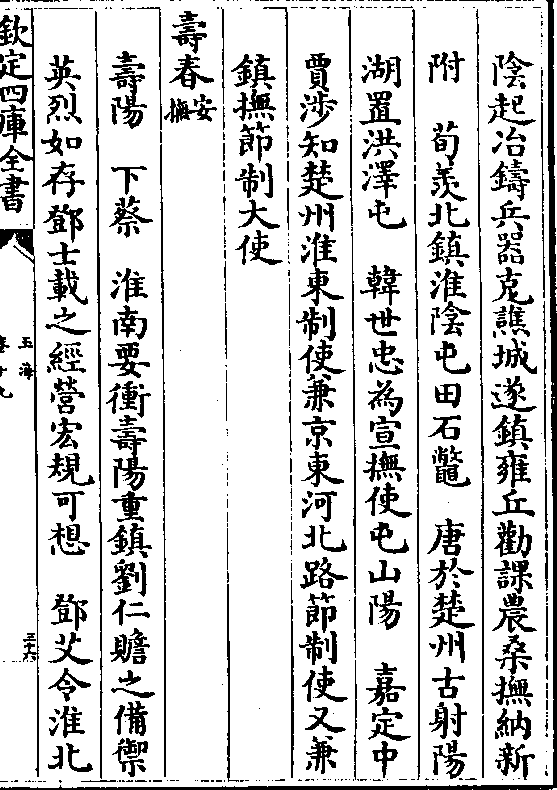 陰起冶鑄兵器克譙城遂鎮雍丘勸課農桑撫納新
附　荀羨北鎮淮陰屯田石鼈　唐於楚州古射陽
湖置洪澤屯　韓世忠為宣撫使屯山陽　嘉定中
賈涉知楚州淮東制使兼京東河北路節制使又兼
鎮撫節制大使
壽春安撫
壽陽　下蔡　淮南要衝壽陽重鎮劉仁贍之備禦
英烈如存鄧士載之經營宏規可想　鄧艾令淮北
欽定四庫全書
玉海
卷十九
三六